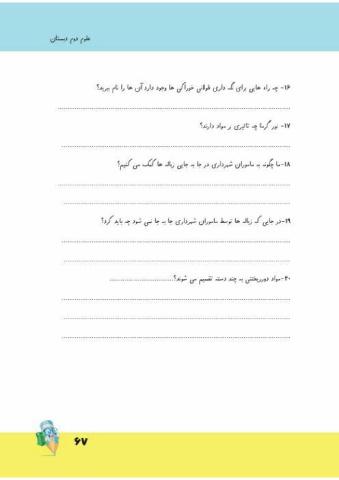 علوم دوم دبستان
۱۶- چه راه هایی برای نگه داری طولانی خوراکی ها وجود دارد آن ها را نام ببرید؟
۱۷- نور گرما چه تاثیری بر مواد دارند؟
۱۸-ما چگونه به ماموران شهرداری در جا به جایی زباله ها کمک می کنیم؟
۱۹-در جایی که زباله ها توسط ماموران شهرداری جا به جا نمی شود چه باید کرد؟
۲۰-مواد دورریختنی به چند دسته تقسیم می شوند؟
۶۷